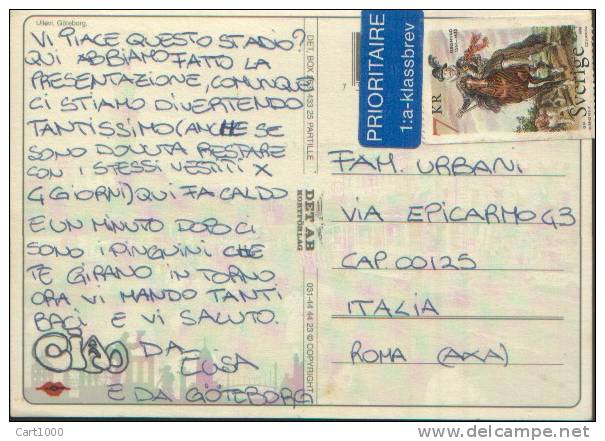 Ullevi, Göteborg.
VI PIACE QUESTO STADIO?
QUI ABBIAMO FATTO LA
PRESENTAZIONE, COMUNQUE
CI STIAMO DIVERTENDO
TANTISSIMO (ANCHE SE
SONO DOVUTA RESTARE
CON I STESSI VESTITI X
4 GIORNI) QUI FA CALDO
E UN MINUTO DOPO CI
SONO I PINGUINI CHE
TE GIRANO IN TORNO
ORA VI MANDO TANTI
BACI E VI SALUTO.
CIAO DA
ELISA
E DA GÖTEBORG
DET AB
KORTFÖRLAG
433 25 PARTILLE
031-44 44 23 © COPYRIGHT
PRIORITAIRE
1:a-klassbrev
7 KR
Sverige
FAM. URBANI
VIA EPICARMO 43
CAP. 00125
ITALIA
ROMA (AXA)
Cart1000
delcampe.net